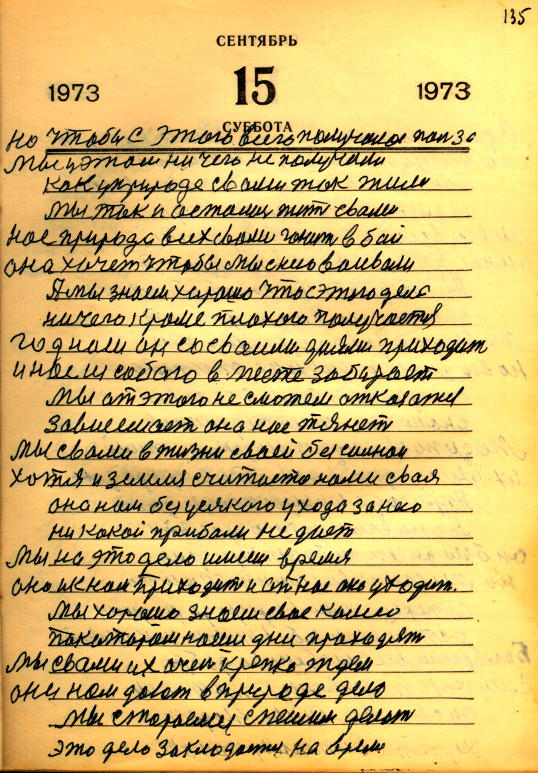 135
СЕНТЯБРЬ
1973 15 1973
СУББОТА
но чтобы с этого всего получалое
мы у этом ни чего не получали
как у природе с вами так жили
мы так и астались жит с вами
нас природа всех с вами гонит в бой
она хочет чтобы мы с нею воивали
А мы знаем харашо что с этого дела
ничего кроме плахого получается
год нам он со своими приходит
и нас и собою в месте забирает
мы от этого не сможем
за всех она нас тянет
мы с вами в жизни своей
хотя и земля считается нами свая
она нам без усякого ухода за нею
ни какой прибали не дает
мы на это дело имеем время
оно и к нам приходит и от нас оно уходит.
мы хорошо знаем свае
па каторам наши дни праходят
мы с вами их очен крепко ждем
они нам дают в природе дело
мы стараемся спешим делат
это дело закладается на время